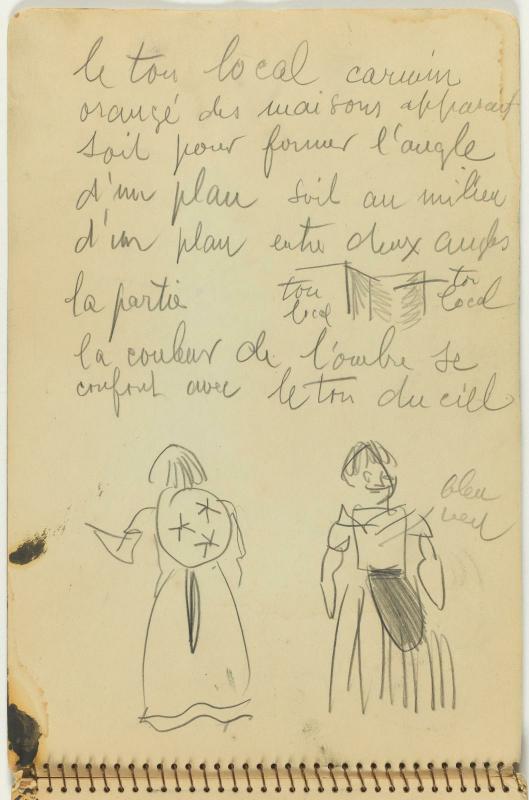 le ton local carmin
orangé des maisons apparait
soit pour former l'angle
d'un plan soit au milieu
d'un plan entre deux angles
la partie
ton local
ton local
la couleur de l'ombre se
confont avec le ton du ciel
bleu
vert